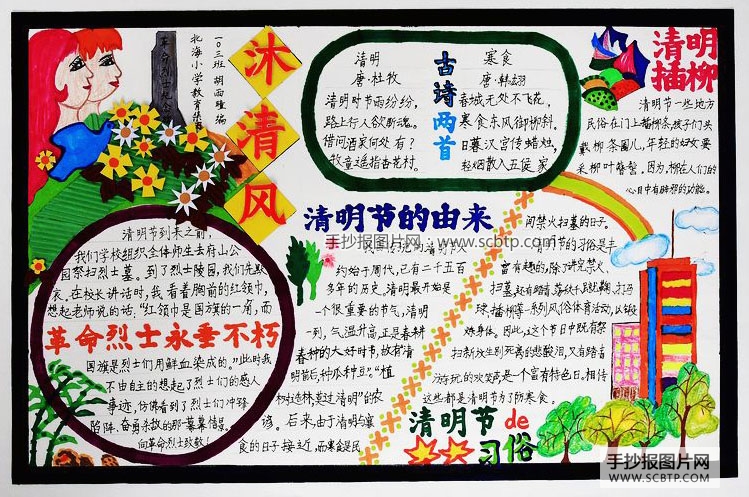 沐清风
北海小学教育集团
一〇三班 胡西瞳 编
革命烈士
清明
唐·杜牧
清明时节雨纷纷,
路上行人欲断魂。
借问酒家何处有?
牧童遥指杏花村。
古诗两首
寒食
唐·韩翃
春城无处不飞花,
寒食东风御柳斜。
日暮汉宫传蜡烛,
轻烟散入五侯家
清明
插柳
清明节一些地方
民俗在门上插柳条,孩子们头
戴柳条圈儿,年轻的妇女要
采柳叶簪髻。因为,柳在人们的
心目中有辟邪的功能。
清明节到来之前,
我们学校组织全体师生去府山公
园祭扫烈士墓。到了烈士陵园,我们先默
哀。在校长讲话时,我看着胸前的红领巾,
想起老师说的话:"红领巾是国旗的一角,而
革命烈士永垂不朽
国旗是烈士们用鲜血染成的。"此时我
不由自主的想起了烈士们的感人
事迹,仿佛看到了烈士们冲锋
陷阵、奋勇杀敌的那一幕幕情景。
向革命烈士致敬!
清明节的由来
手抄报图片网 www.scbtp.com
约始于周代,已有二千五百
多年的历史。清明最开始是
一个很重要的节气,清明
一到,气温升高,正是春耕
春种的大好时节,故有"清
明前后,种瓜种豆"。"植
树造林,莫过清明"的农
谚。后来,由于清明与寒
食的日子接近,而寒食是民
间禁火扫墓的日子。
清明节的习俗是丰
富有趣的,除了讲究禁火、
扫墓,还有踏青、荡秋千、蹴鞠、打马
球、插柳等一系列风俗体育活动,以锻
炼身体。因此,这个节日中既有祭
扫新坟生别死离的悲酸泪,又有踏青
游玩的欢笑声,是一个富有特色日。相传
这些都是清明节为了防寒食。
清明节de
习俗
手抄报图片网
WWW.SCBTP.COM